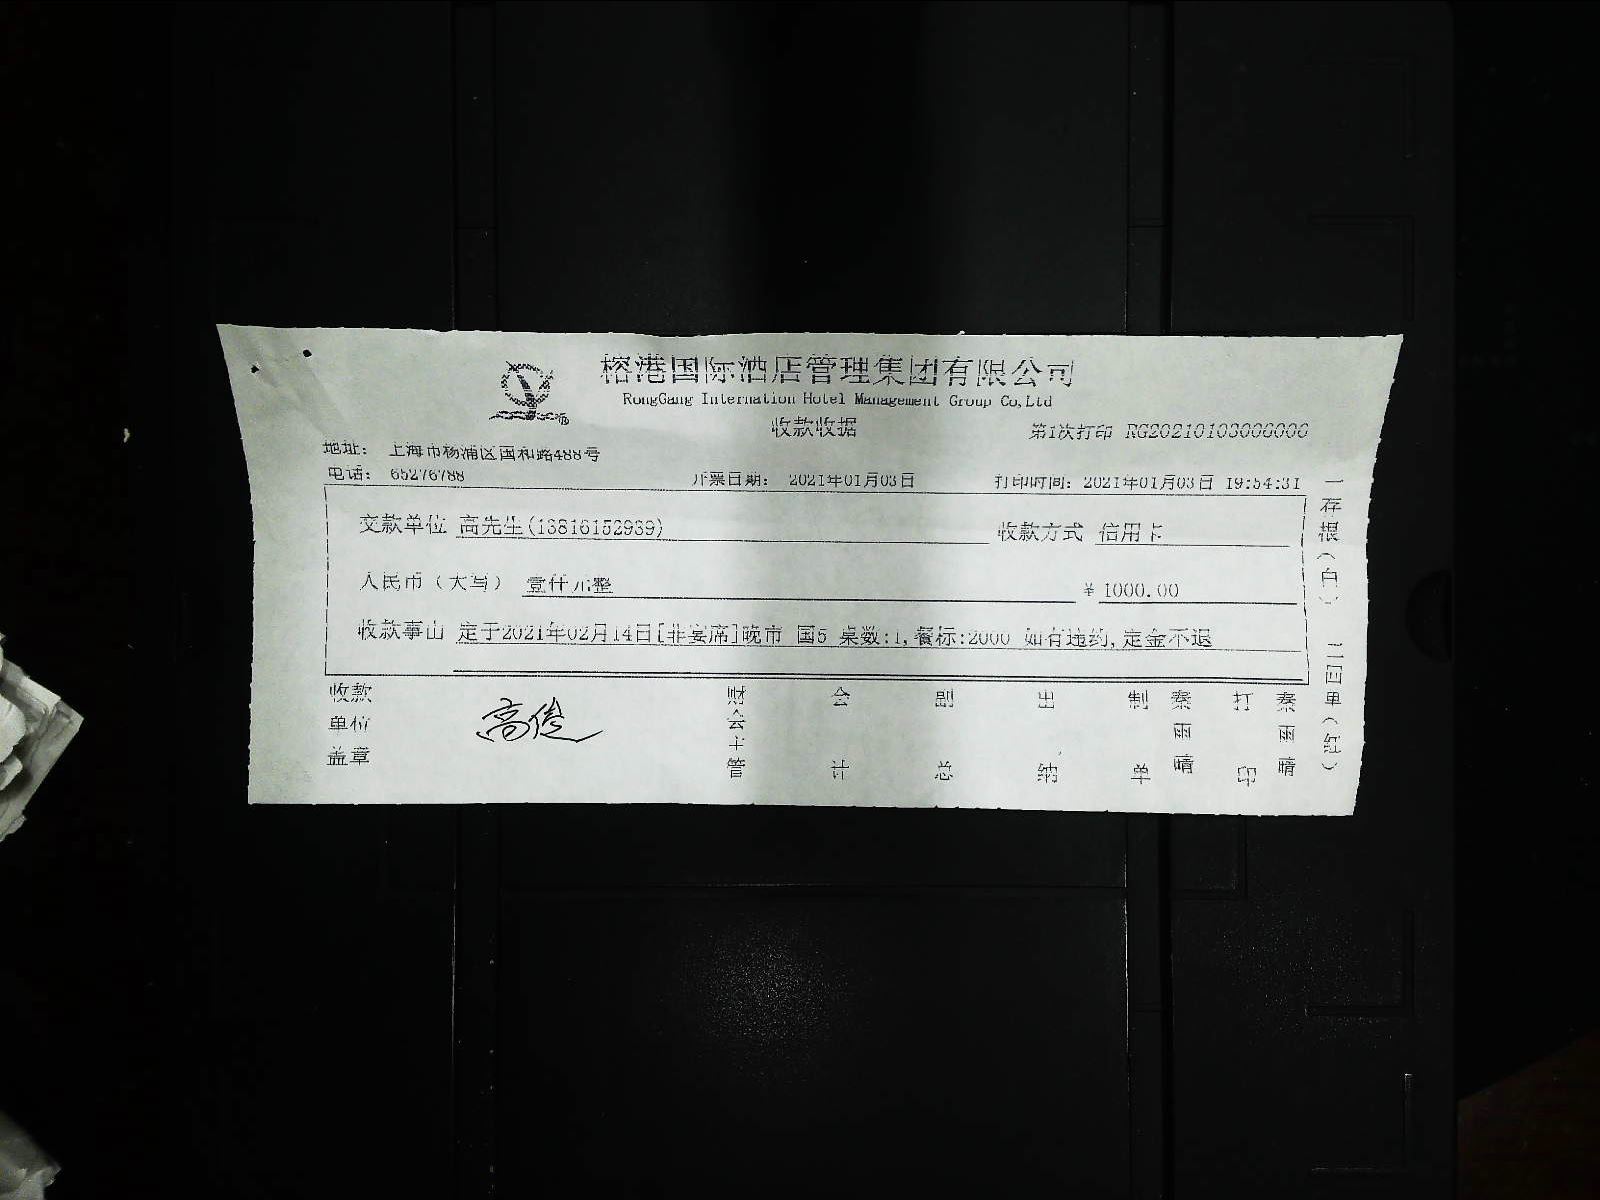 榕港国际酒店管理集团有限公司
RongGang Internation Hotel Management Group Co,Ltd
收款收据
第1次打印 RG20210103006006
地址： 上海市杨浦区国和路488号
电话： 65276788 开票日期： 2021年01月03日 打印时间：2021年01月03日 19:54:31
交款单位 高先生(13816152939) 收款方式 信用卡
人民币（大写） 壹仟元整 ¥ 1000.00
收款事由 定于2021年02月14日[非宴席]晚市 国5 桌数:1,餐标:2000 如有违约,定金不退
收款单位盖章
高俊
会主管
会计
副总
出纳
制单
秦雨晴
打印
秦雨晴
一存根（白） 二回单（红）